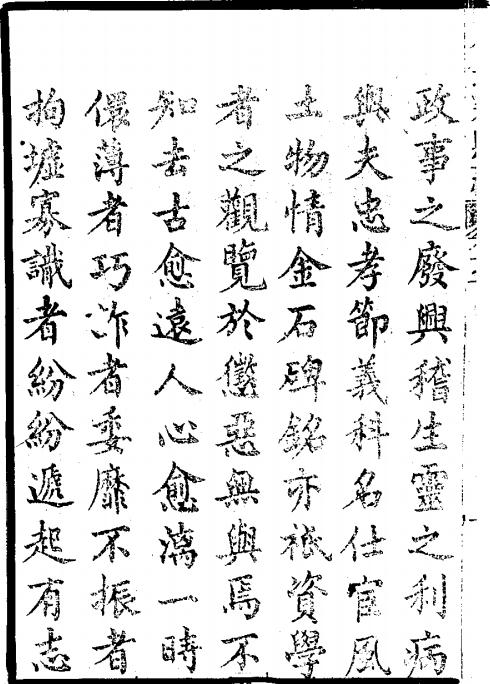 政事之廢興稽生靈之利病
與夫忠孝節義科名仕宦風
土物情金石碑銘亦祇資學
者之觀覽於懲惡無與焉不
知去古愈遠人心愈漓一時
儇薄者巧詐者委靡不振者
拘墟寡識者紛紛遞起有志